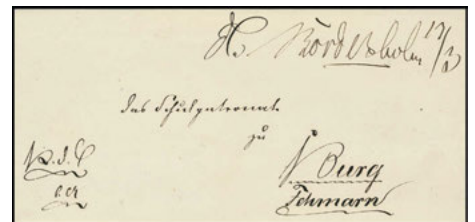 Bordesholm 17/3
das Schulpatronat
zu
Burg
Fehmarn